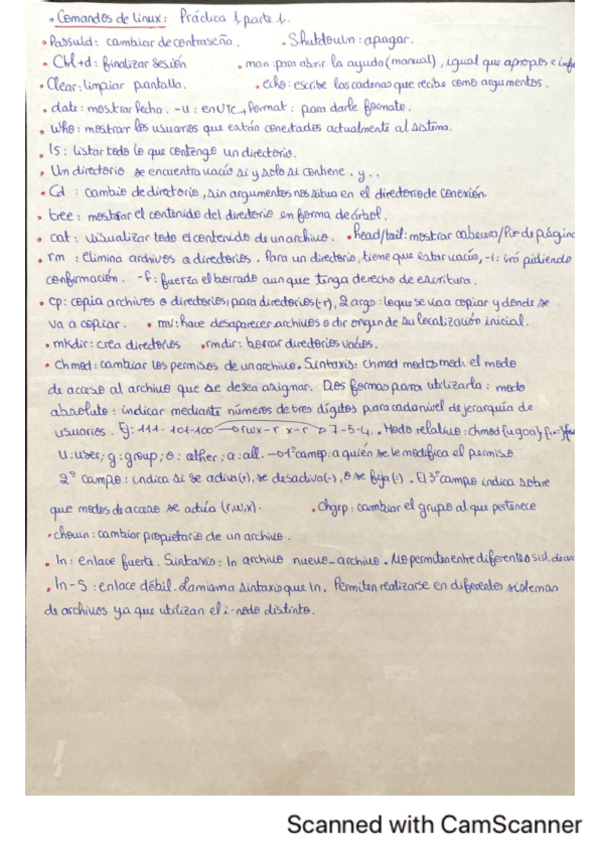 • Comandos de Linux: Práctica 1 parte 1.
• Passwld: cambiar de contraseña. • Shutdown: apagar.
• Ctrl+d: finalizar sesión • man: para abrir la ayuda (manual), igual que apropos e info
• Clear: limpiar pantalla. • echo: escribe las cadenas que recibe como argumentos.
• date: mostrar fecha. -u: en UTC, + format: para darle formato.
• Who: mostrar los usuarios que están conectados actualmente al sistema.
• ls: listar todo lo que contenga un directorio.
• Un directorio se encuentra vacío si y solo si contiene . y ..
• Cd: cambio de directorio, sin argumentos nos situa en el directorio de conexión.
• tree: mostrar el contenido del directorio en forma de árbol.
• cat: visualizar todo el contenido de un archivo. • head/tail: mostrar cabecera/Pie de página
• rm: Elimina archivos a directorios. Para un directorio, tiene que estar vacío, -i: irá pidiendo
confirmación. -f: fuerza el borrado aunque tenga derecho de escritura.
• cp: copia archivos o directorios; para directorios (-r), 2 argo: lo que se va a copiar y donde se
va a copiar. • mv: hace desaparecer archivos o dir origen de su localización inicial.
• mkdir: crea directorios • rmdir: borrar directorios vacíos.
• Chmod: cambiar los permisos de un archivo. Sintaxis: chmod modo; modi: el modo
de acceso al archivo que se desea asignar. Dos formas para utilizarla: modo
absoluto: indicar mediante números de tres dígitos para cada nivel de jerarquía de
usuarios. Ej: 111-101-100 → rwx-r x-r → 7-5-4. Modo relativo: chmod {ugoa} {+-=}
u: user; g: group; o: other; a: all. → 1º camp: a quién se le modifica el permiso
2º campo: indica si se activa (+), se desactiva (-), o se fija (=). El 3º campo indica sobre
que modos de acceso se actúa (r,w,x). • Chgrp: cambiar el grupo al que pertenece
• chown: cambiar propietario de un archivo.
• ln: enlace fuerte. Sintaxis: ln archivo nuevo_archivo. No permiten entre diferentes sist. de arc
• ln-s: enlace débil. La misma sintaxis que ln. Permiten realizarse en diferentes sistemas
de archivos ya que utilizan el i-nodo distinto.
Scanned with CamScanner